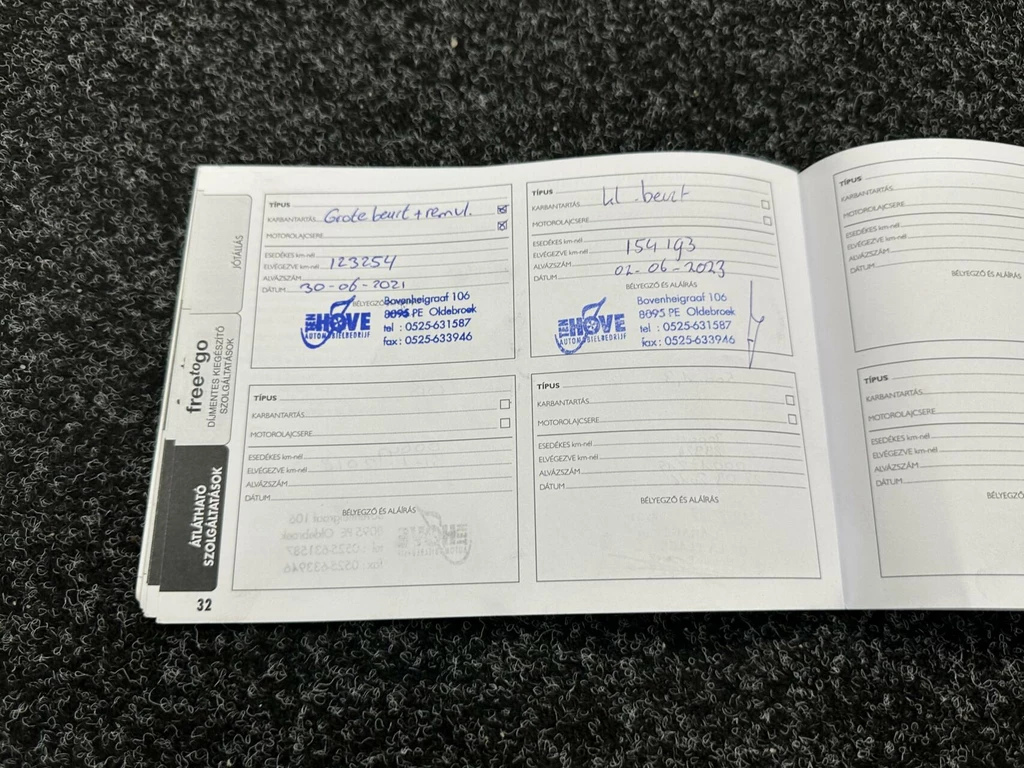 JÓTÁLLÁS
freetogo
DÍJMENTES KIEGÉSZÍTŐ
SZOLGÁLTATÁSOK
ÁTLÁTHATÓ
SZOLGÁLTATÁSOK
32
TÍPUS
KARBANTARTÁS Grote beurt + remvl.
MOTOROLAJCSERE
ESEDÉKES km-nél
ELVÉGEZVE km-nél 123254
ALVÁZSZÁM
DÁTUM 30-06-2021
BÉLYEGZŐ
TEN HOVE
AUTOMOBIELBEDRIJF
Bovenheigraaf 106
8095 PE Oldebroek
tel : 0525-631587
fax : 0525-633946
TÍPUS kl. beurt
KARBANTARTÁS
MOTOROLAJCSERE
ESEDÉKES km-nél
ELVÉGEZVE km-nél 154193
ALVÁZSZÁM
DÁTUM 02-06-2023
BÉLYEGZŐ ÉS ALÁÍRÁS
TEN HOVE
AUTOMOBIELBEDRIJF
Bovenheigraaf 106
8095 PE Oldebroek
tel : 0525-631587
fax : 0525-633946
TÍPUS
KARBANTARTÁS
MOTOROLAJCSERE
ESEDÉKES km-nél
ELVÉGEZVE km-nél
ALVÁZSZÁM
DÁTUM
BÉLYEGZŐ ÉS ALÁÍRÁS
TÍPUS
KARBANTARTÁS
MOTOROLAJCSERE
ESEDÉKES km-nél
ELVÉGEZVE km-nél
ALVÁZSZÁM
DÁTUM
BÉLYEGZŐ ÉS ALÁÍRÁS
TÍPUS
KARBANTARTÁS
MOTOROLAJCSERE
ESEDÉKES km-nél
ELVÉGEZVE km-nél
ALVÁZSZÁM
DÁTUM
BÉLYEGZŐ ÉS ALÁÍRÁS
TÍPUS
KARBANTARTÁS
MOTOROLAJCSERE
ESEDÉKES km-nél
ELVÉGEZVE km-nél
ALVÁZSZÁM
DÁTUM
BÉLYEGZŐ